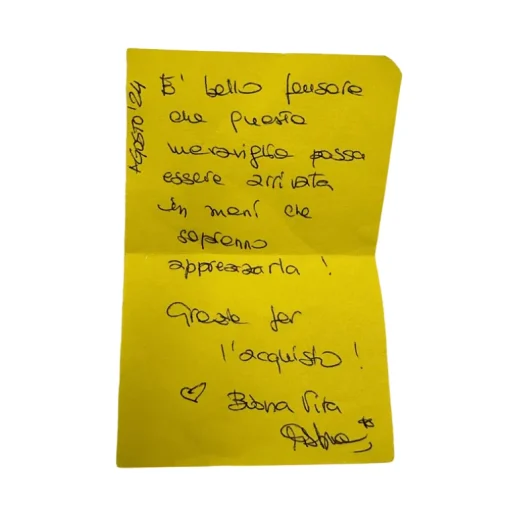 AGOSTO '24
E' bello pensare
che questa
meraviglia possa
essere arrivata
in mani che
sapranno
apprezzarla !
Grazie per
l'acquisto !
♡ Buona Vita